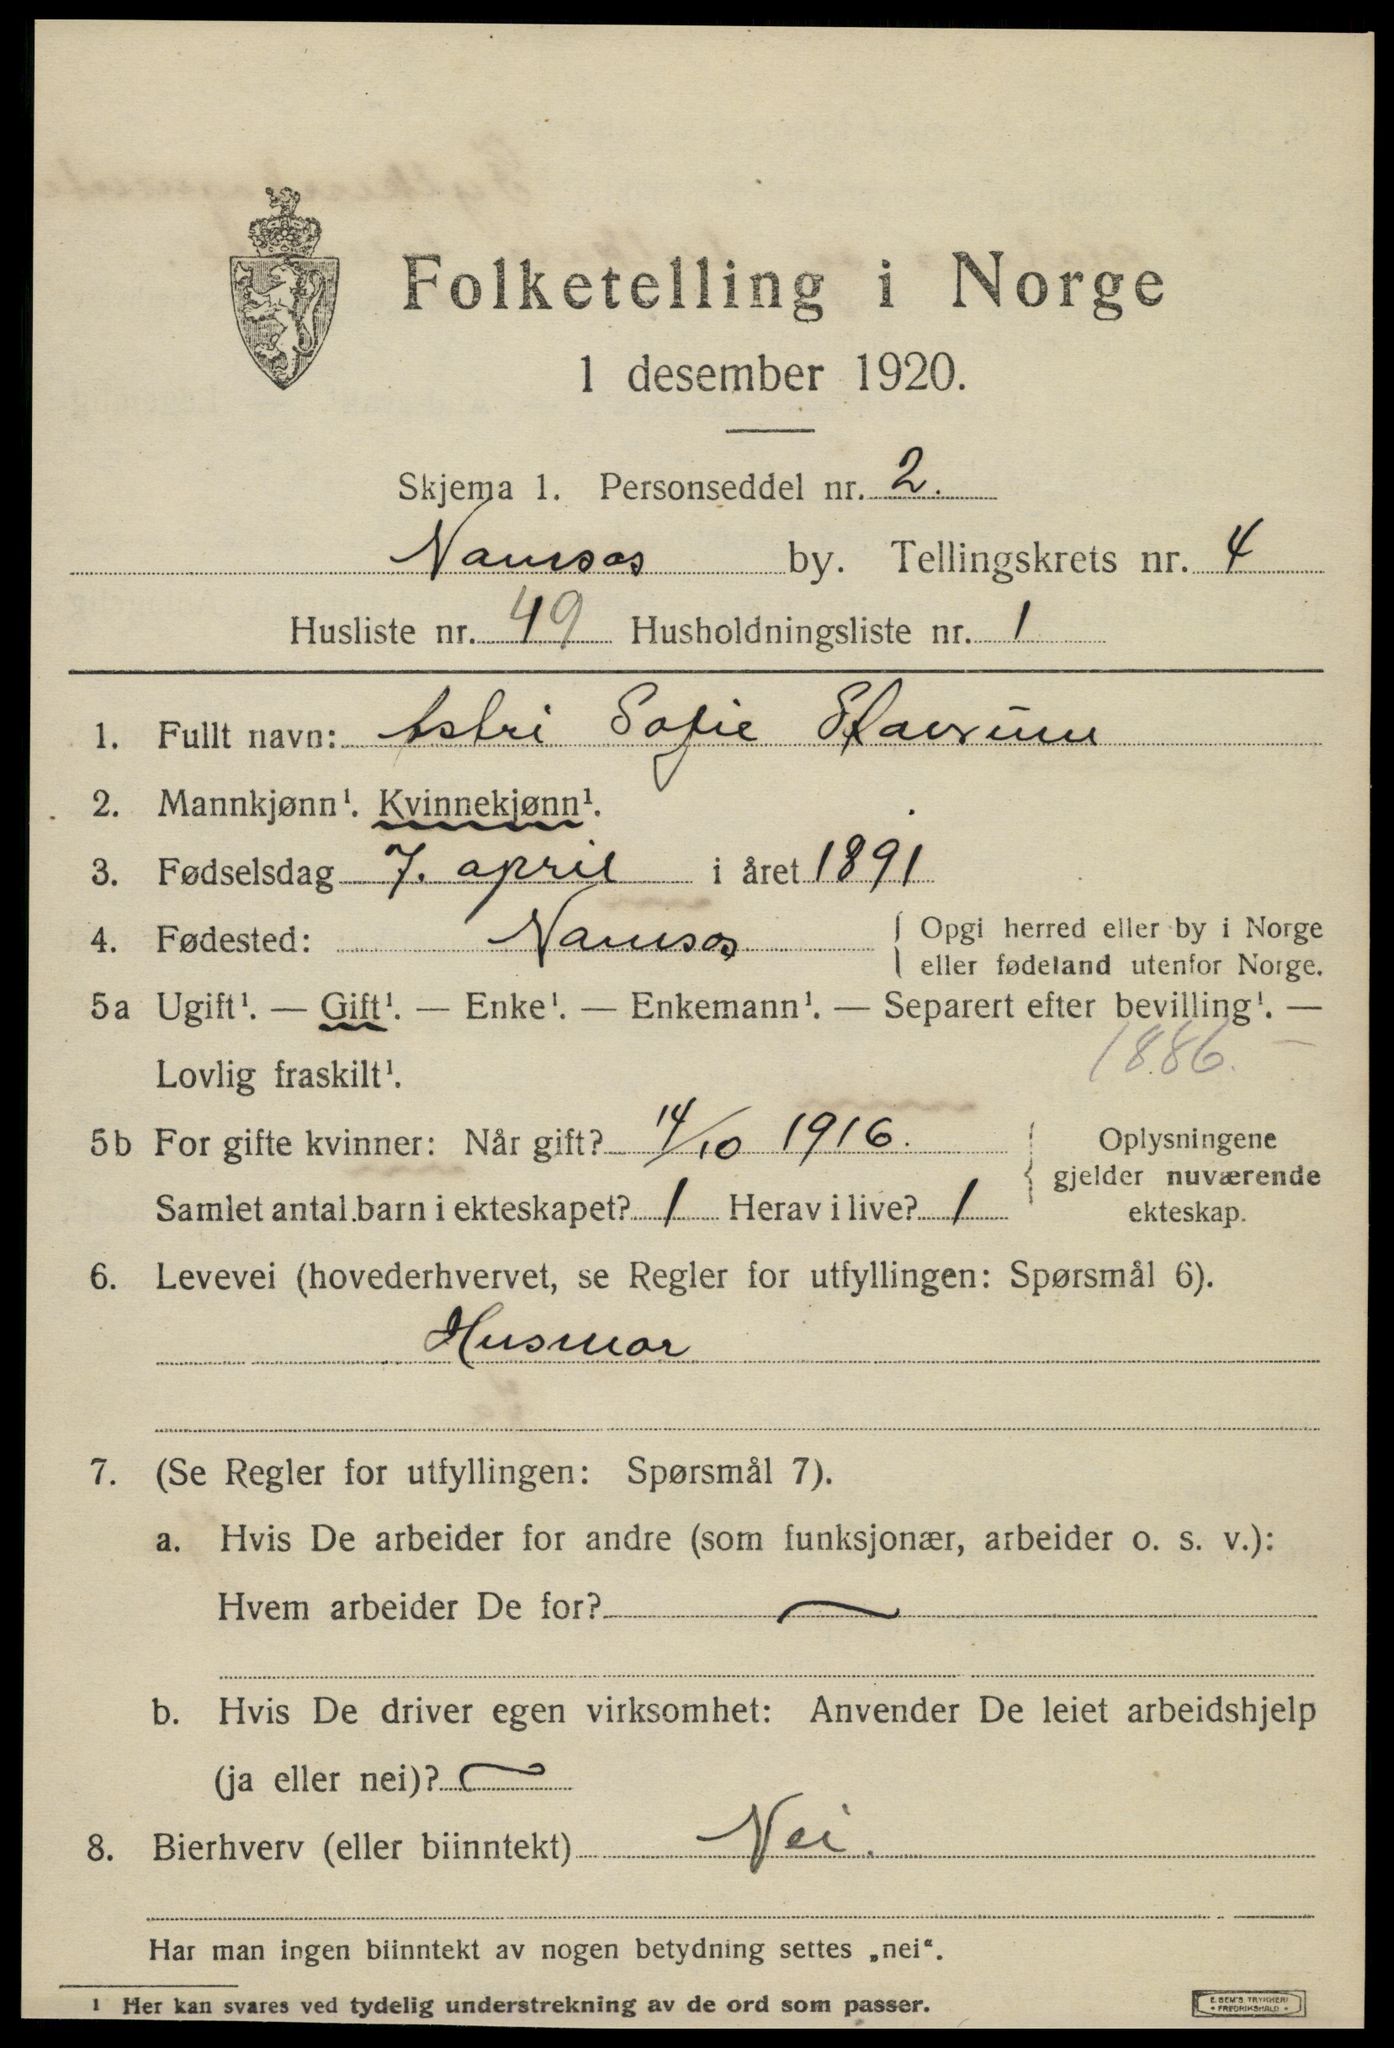 Folketelling i Norge
1 desember 1920.
Skjema 1. Personseddel nr. 2.
Namsos by. Tellingskrets nr. 4
Husliste nr. 49 Husholdningsliste nr. 1
1. Fullt navn: Astri Sofie Stavrum
2. Mannkjønn¹. Kvinnekjønn¹.
3. Fødselsdag 7. april i året 1891
4. Fødested: Namsos { Opgi herred eller by i Norge
eller fødeland utenfor Norge.
5a Ugift¹. — Gift¹. — Enke¹. — Enkemann¹. — Separert efter bevilling¹. —
Lovlig fraskilt¹. 1886. —
5b For gifte kvinner: Når gift? 14/10 1916. { Oplysningene
gjelder nuværende
Samlet antal barn i ekteskapet? 1 Herav i live? 1 ekteskap.
6. Levevei (hovederhvervet, se Regler for utfyllingen: Spørsmål 6).
Husmor
7. (Se Regler for utfyllingen: Spørsmål 7).
a. Hvis De arbeider for andre (som funksjonær, arbeider o. s. v.):
Hvem arbeider De for? —
b. Hvis De driver egen virksomhet: Anvender De leiet arbeidshjelp
(ja eller nei)? —
8. Bierhverv (eller biinntekt) Nei.
Har man ingen biinntekt av nogen betydning settes „nei“.
¹ Her kan svares ved tydelig understrekning av de ord som passer.
E. SEM'S TRYKKERI
• FREDRIKSHALD •